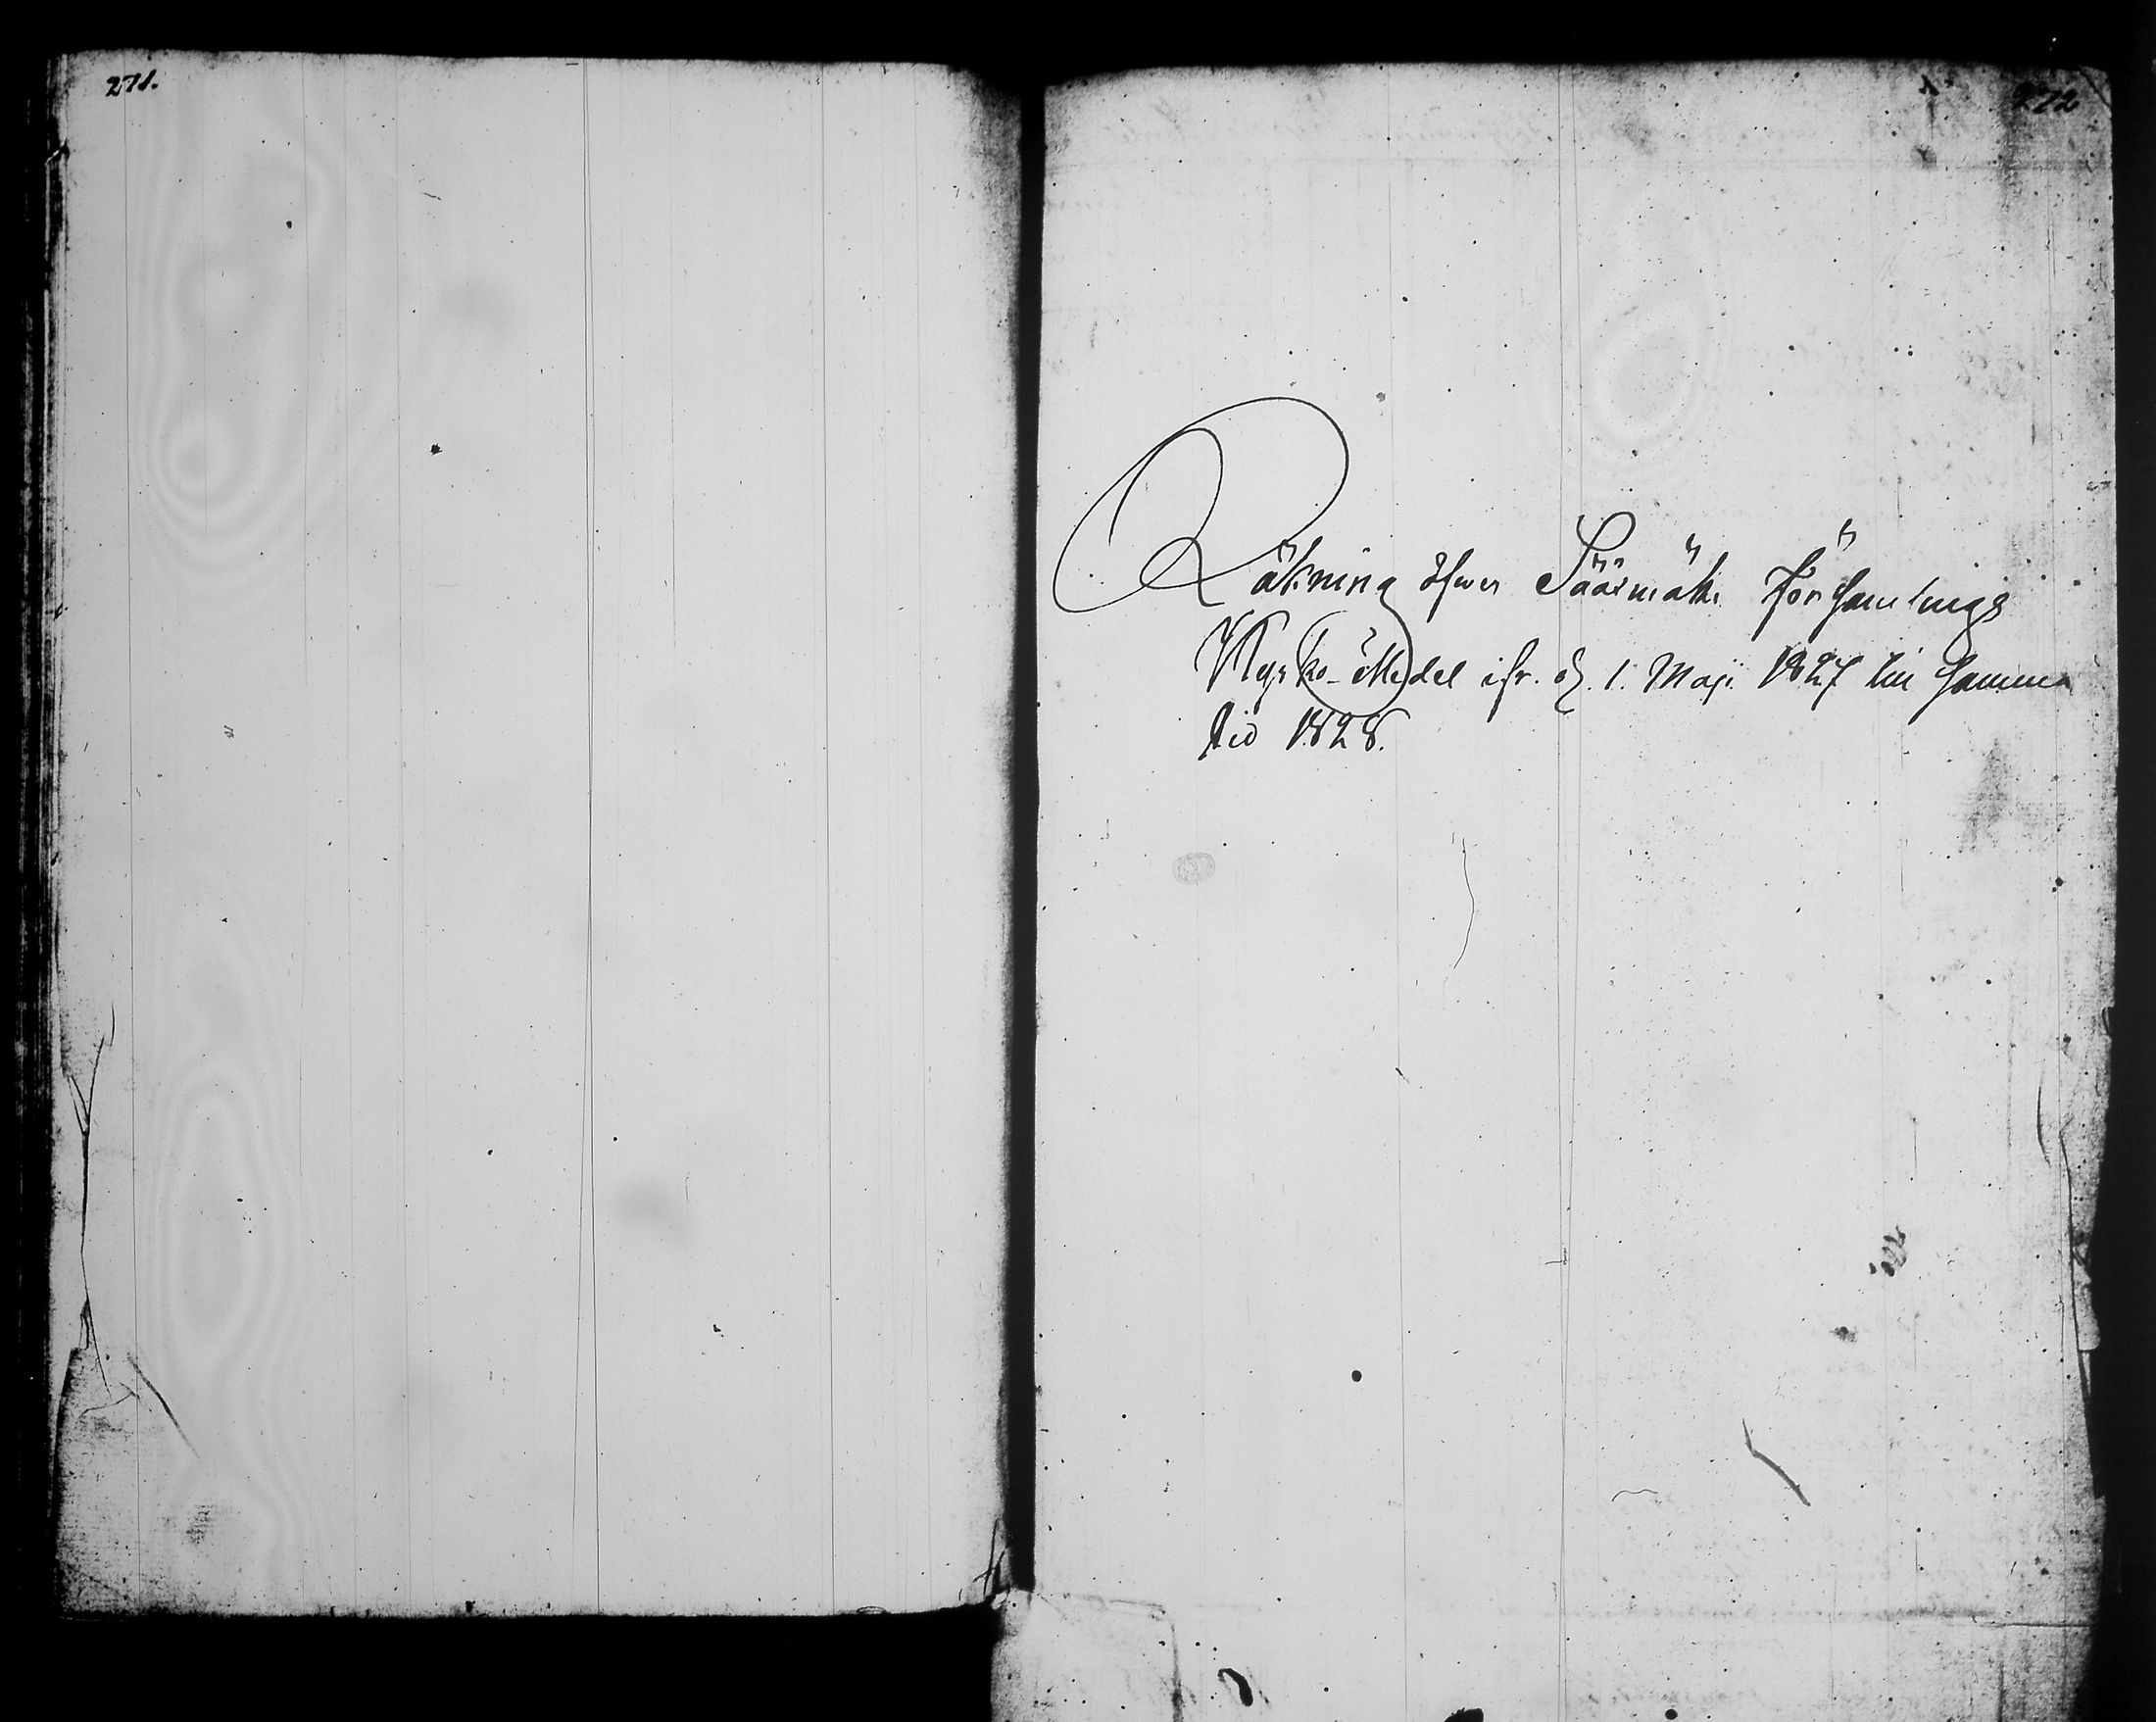 271.
272
Räkning öfwer Sääxmäki Församlings
Kyrko-Medel ifr. d. 1. Maji 1827 till samma
tid 1828.